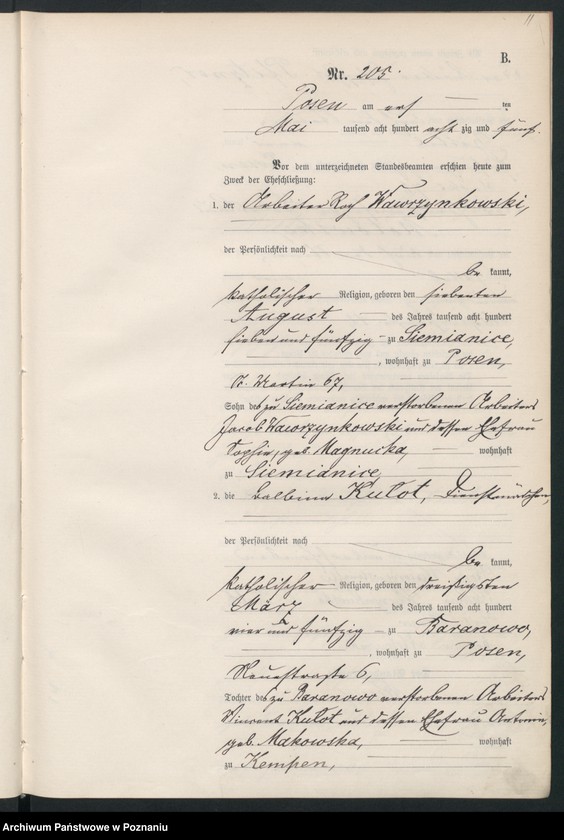 11
B.
Nr. 205.
Posen am ersten
Mai tausend acht hundert achtzig und fünf.
Vor dem unterzeichneten Standesbeamten erschien heute zum
Zweck der Eheschließung:
1. der Arbeiter Roch Wawrzynkowski,
der Persönlichkeit nach
bekannt,
katholischer Religion, geboren den siebenten
August des Jahres tausend acht hundert
sieben und fünfzig zu Siemianice,
, wohnhaft zu Posen,
St. Martin 67,
Sohn des zu Siemianice verstorbenen Arbeiters
Jacob Wawrzynkowski und dessen Ehefrau
Sophie, geb. Magnucka, wohnhaft
zu Siemianice,
2. die Balbina Kulot, Dienstmädchen,
der Persönlichkeit nach
bekannt,
katholischer Religion, geboren den dreißigsten
März des Jahres tausend acht hundert
vier und fünfzig zu Baranowo,
, wohnhaft zu Posen,
Neuestraße 6,
Tochter des zu Baranowo verstorbenen Arbeiters
Vincent Kulot und dessen Ehefrau Antonie,
geb. Makowska, wohnhaft
zu Kempen,
Archiwum Państwowe w Poznaniu